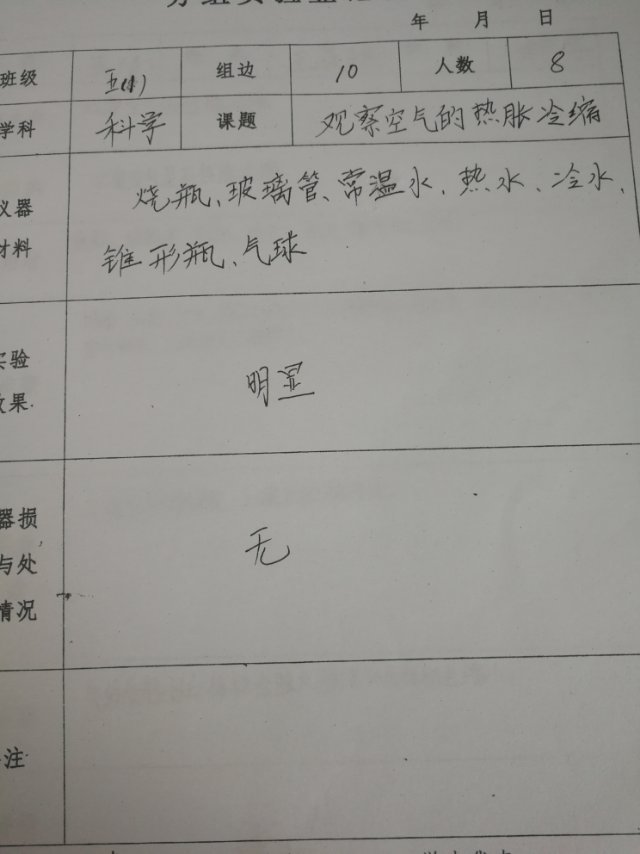 年 月 日
班级 五(1) 组边 10 人数 8
学科 科学 课题 观察空气的热胀冷缩
仪器 烧瓶、玻璃管、常温水、热水、冷水、
材料 锥形瓶、气球
实验
效果 明显
器损
与处 无
情况
注